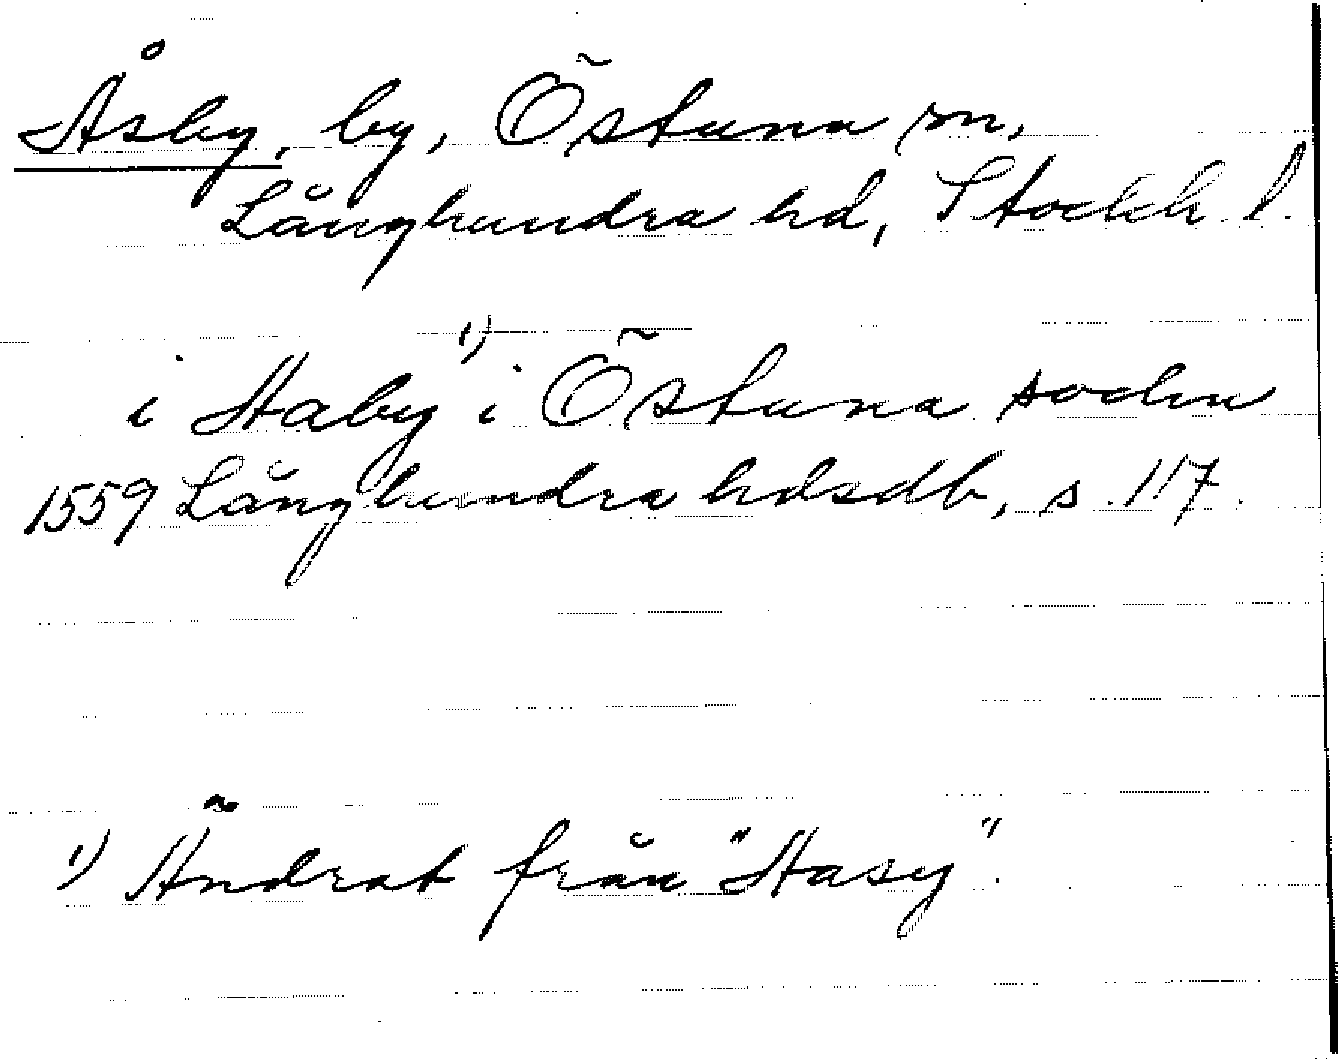 Åsby, by, Östuna sn,
Långhundra hd, Stockh. l.
i Aaby 1) i Östuna sochn
1559 Långhundra hdsdb, s. 117.
1) Ändrat från "Aasy".